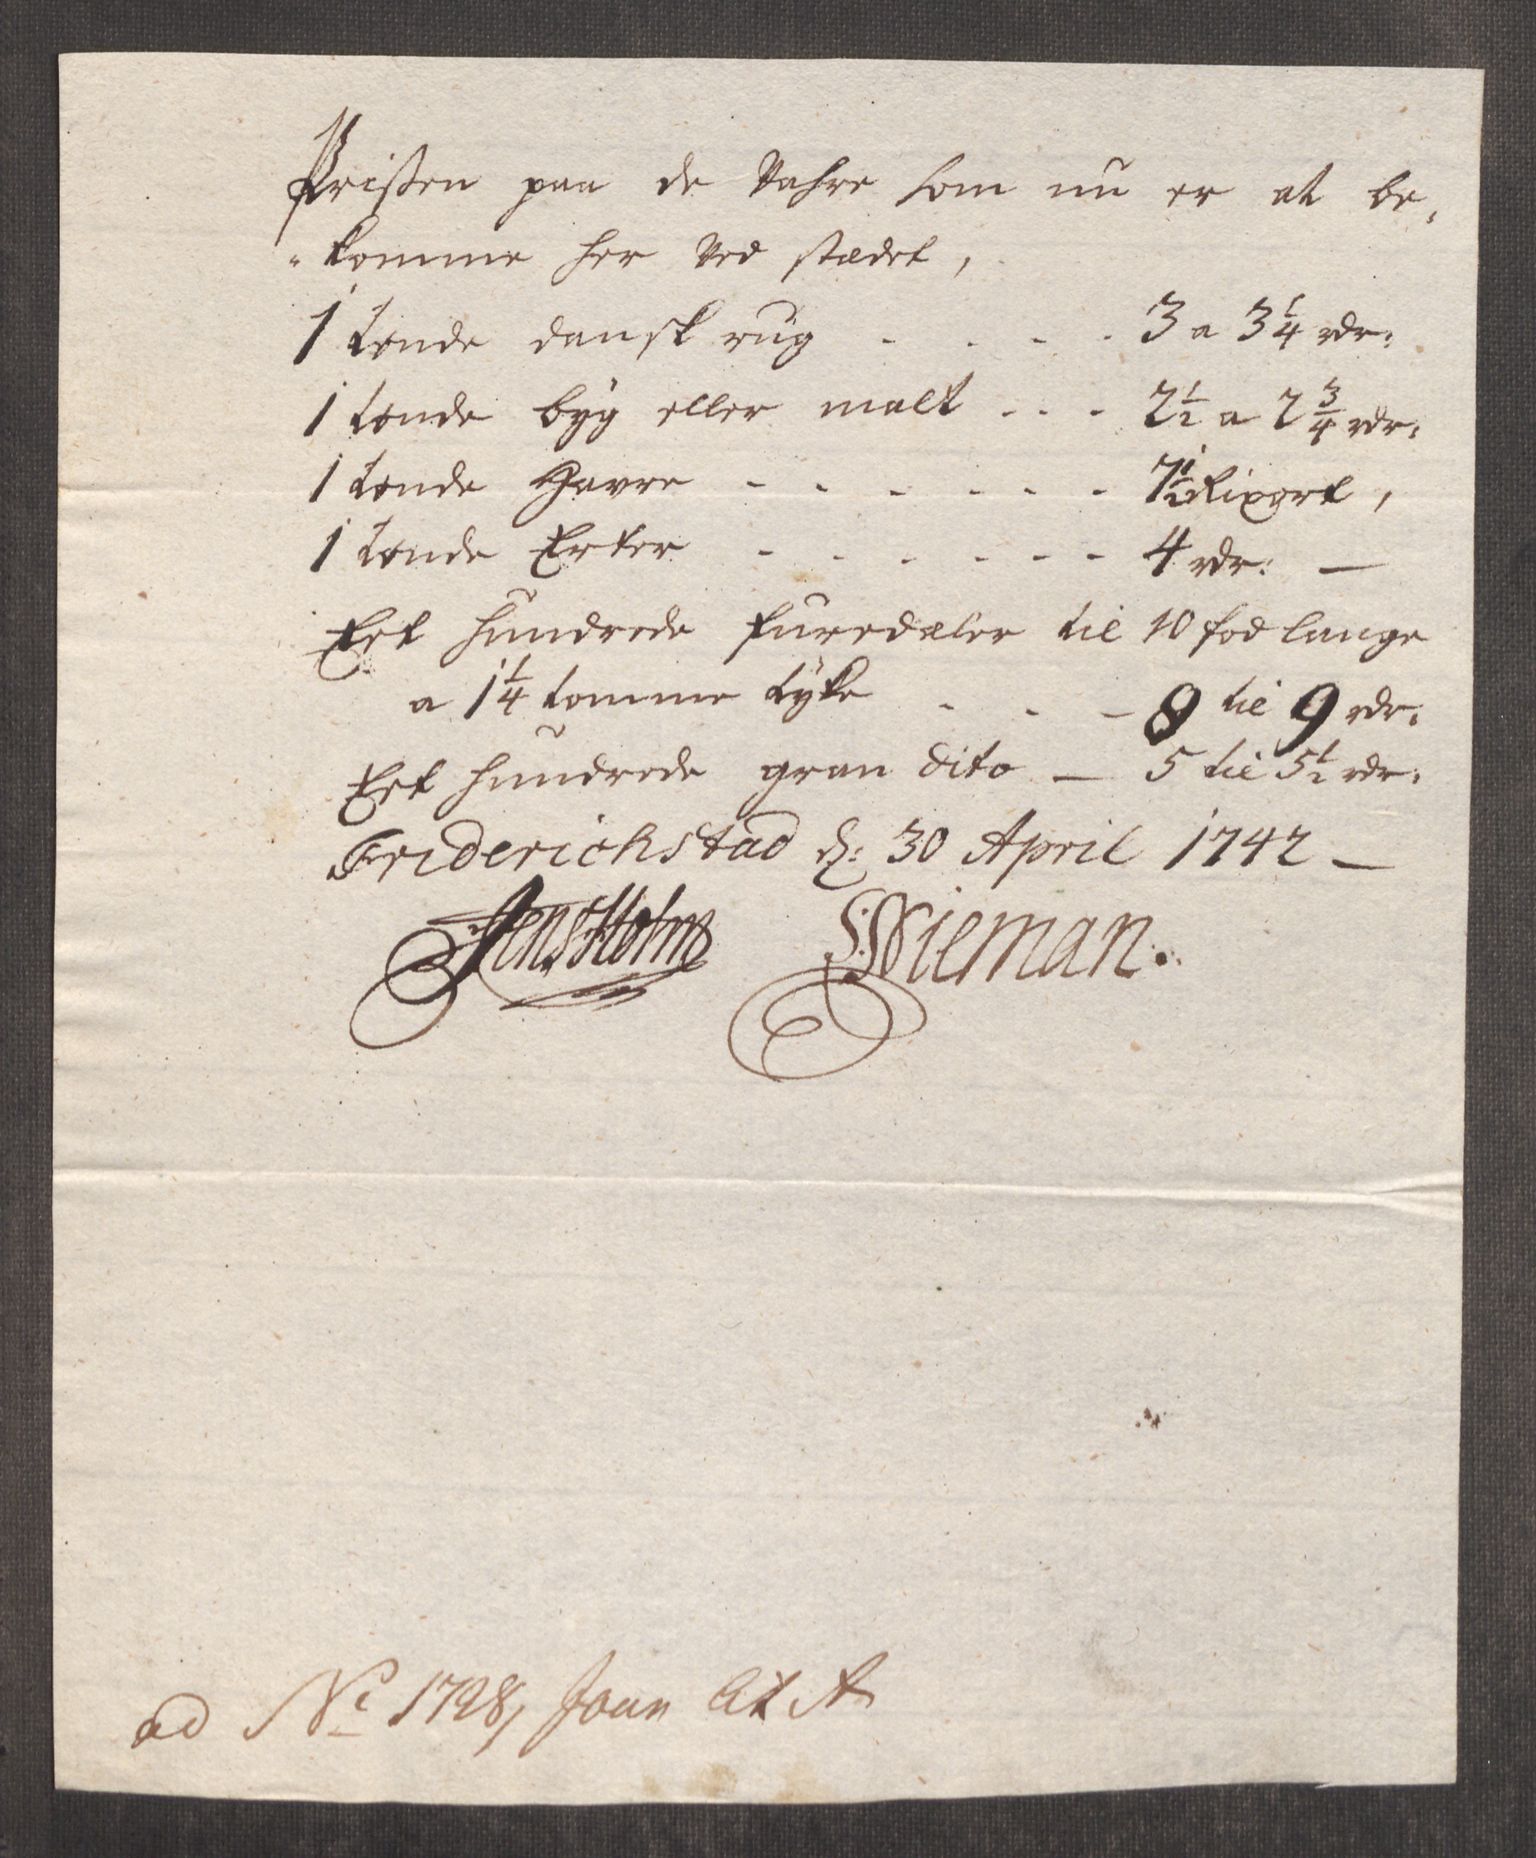 Prissen paa de Vahre som nu er at be,
"komme her Ved stædet,
1 tønde dansk rug - - - - 3 a 3 1/4 rdr:
1 tønde byg eller malt - - - 2 1/2 a 2 3/4 rdr:
1 tønde Havre - - - - - - 7 1/2 Rixort,
1 tønde Erter - - - - - - 4 rdr: —
Eet hundrede furredæler til 10 fod lange
a 1 1/4 tomme tyke - - - 8 til 9 rdr:
Eet hundrede gran dito — 5 til 5 1/2 rdr:
Friderichstad d: 30 April 1742 —
Jens Holm S: Wieman.
ad No 1728,